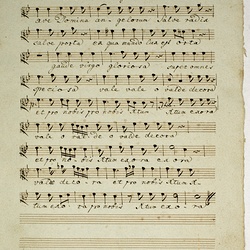 ave Domina angelorum Salve radix
Salve porta ex qua mundo lux est orta
gaude virgo gloriosa super omnes
speciosa vale vale o valde decora
et pro nobis pro nobis Xtum Xtum exora
vale o valde o valde decora
et pro nobis Xtum exora exora
valde decora et pro nobis Xtum X
tum exora pro nobis Xtum exora